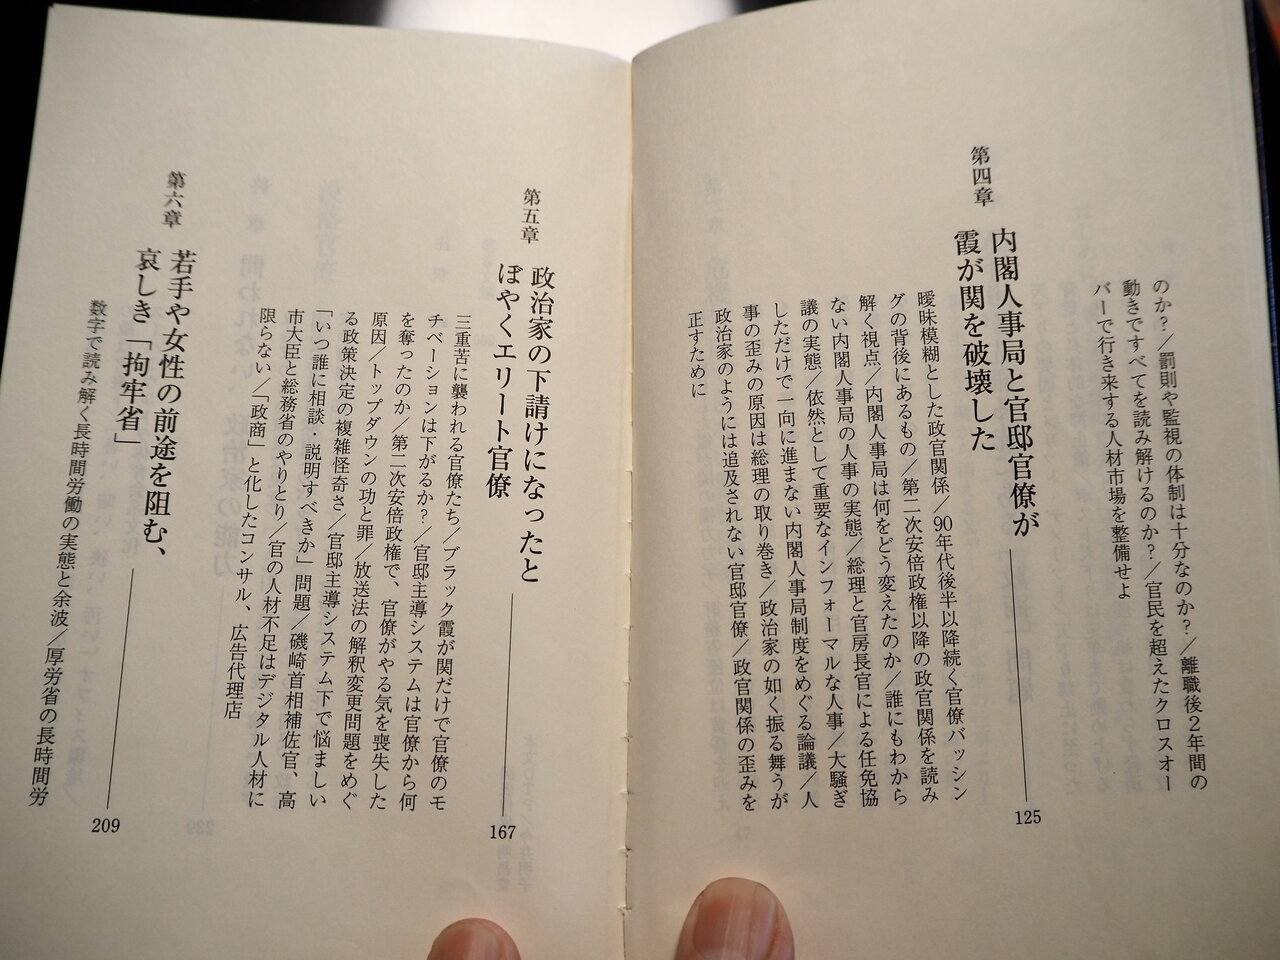 のか?／罰則や監視の体制は十分なのか?／離職後2年間の
動きですべてを読み解けるのか?／官民を超えたクロスオー
バーで行き来する人材市場を整備せよ
第四章
内閣人事局と官邸官僚が
霞が関を破壊した
125
曖昧模糊とした政官関係／90年代後半以降続く官僚バッシン
グの背後にあるもの／第二次安倍政権以降の政官関係を読み
解く視点／内閣人事局は何をどう変えたのか／誰にもわから
ない内閣人事局の人事の実態／総理と官房長官による任免協
議の実態／依然として重要なインフォーマルな人事／大騒ぎ
しただけで一向に進まない内閣人事局制度をめぐる論議／人
事の歪みの原因は総理の取り巻き／政治家の如く振る舞うが
政治家のようには追及されない官邸官僚／政官関係の歪みを
正すために
第五章
政治家の下請けになったと
ぼやくエリート官僚
167
三重苦に襲われる官僚たち／ブラック霞が関だけで官僚のモ
チベーションは下がるか?／官邸主導システムは官僚から何
を奪ったのか／第二次安倍政権で、官僚がやる気を喪失した
原因／トップダウンの功と罪／放送法の解釈変更問題をめぐ
る政策決定の複雑怪奇さ／官邸主導システム下で悩ましい
「いつ誰に相談・説明すべきか」問題／磯崎首相補佐官、高
市大臣と総務省のやりとり／官の人材不足はデジタル人材に
限らない／「政商」と化したコンサル、広告代理店
第六章
若手や女性の前途を阻む、
哀しき「拘牢省」
209
数字で読み解く長時間労働の実態と余波／厚労省の長時間労